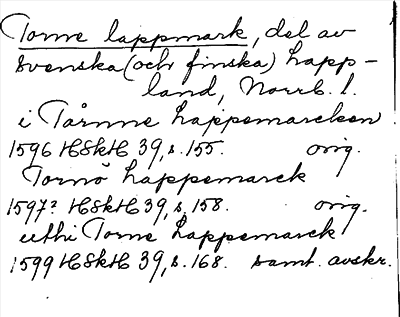 Torne lappmark, del av
Svenska (och finska) Lapp-
land, Norrb. l.
i Tårnne Lappemarcken
1596 HSkH 39, s. 155. orig.
Tornö Lappemarck
1597? HSkH 39, s. 158. orig.
uthi Torne Lappemarck
1599 HSkH 39, s. 168. samt. avskr.